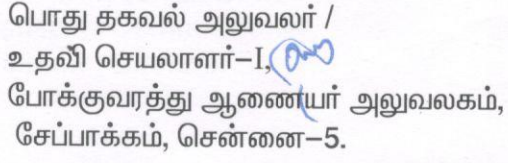 பொது தகவல் அலுவலர் /
உதவி செயலாளர்–I,
போக்குவரத்து ஆணையர் அலுவலகம்,
சேப்பாக்கம், சென்னை–5.